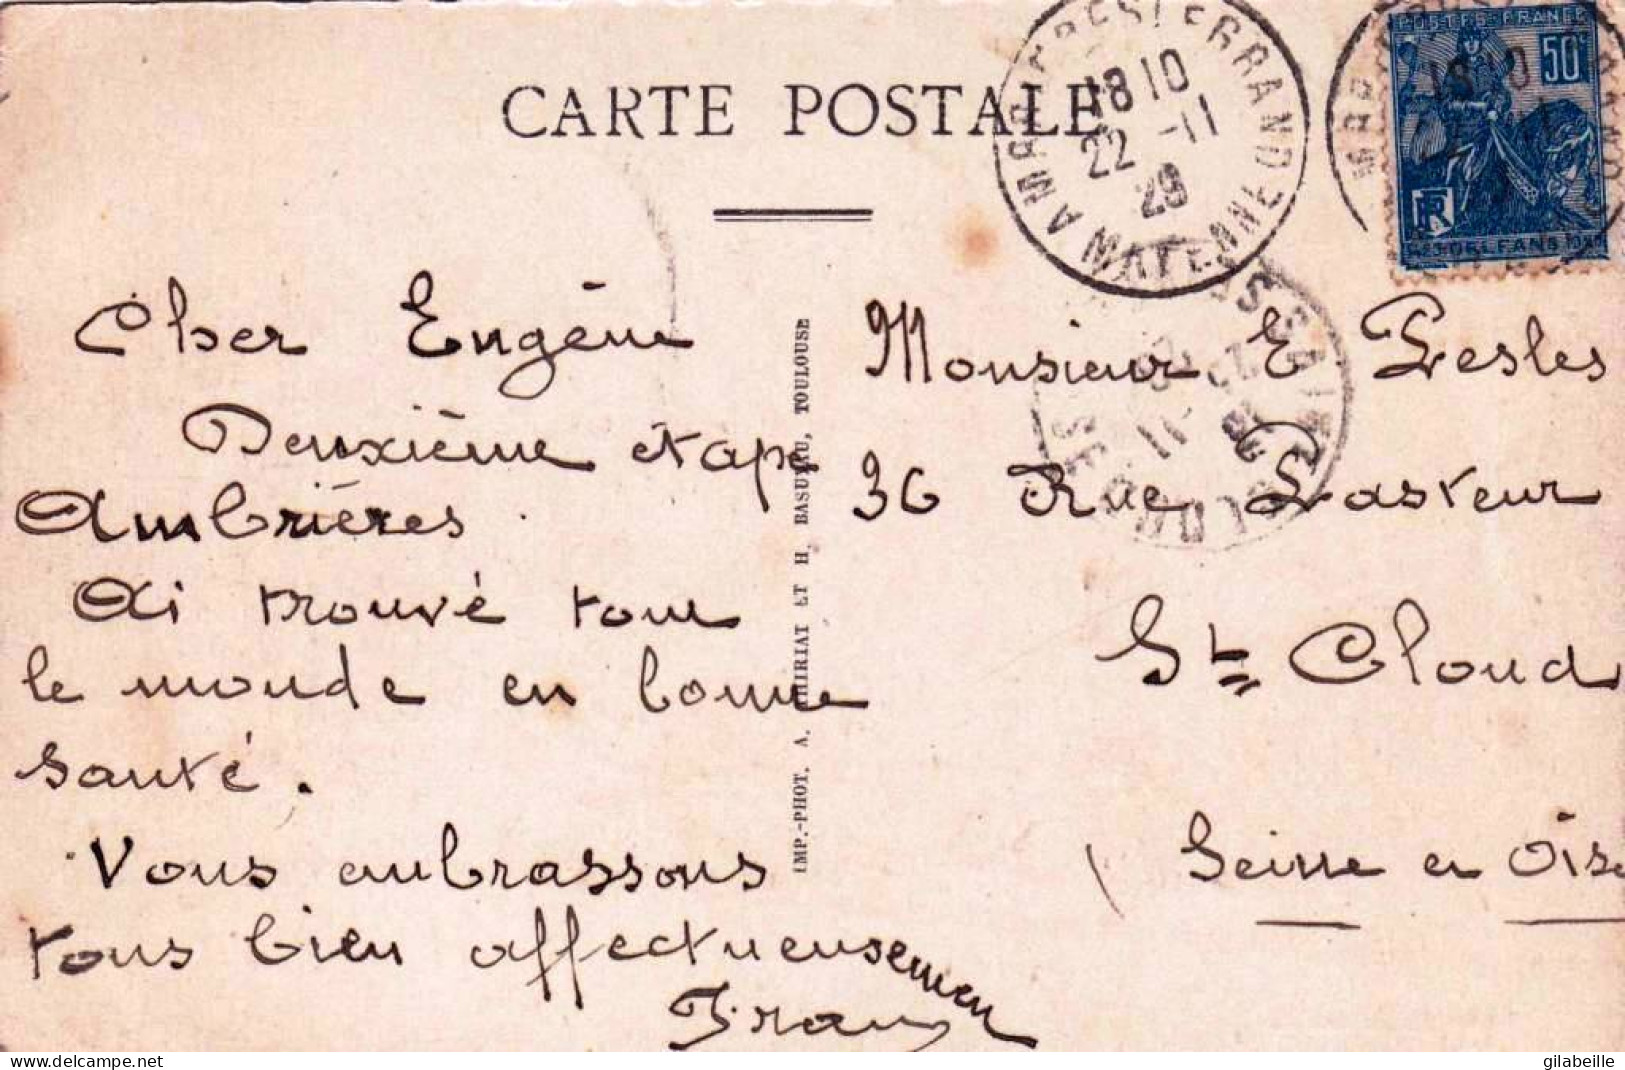 CARTE POSTALE
18 10
22 -11
29
MAYENNE
POSTES FRANCE
50c
RF
ORLEANS
Cher Eugène
Deuxième étape
Ambrières.
Ai trouvé tout
le monde en bonne
santé.
Vous embrassons
tous bien affectueusement
IMP.-PHOT. A. THIRIAT ET H. BASUYAU, TOULOUSE
Monsieur E Lesles
36 Rue Pasteur
St Cloud
Seine et Oise
gilabeille